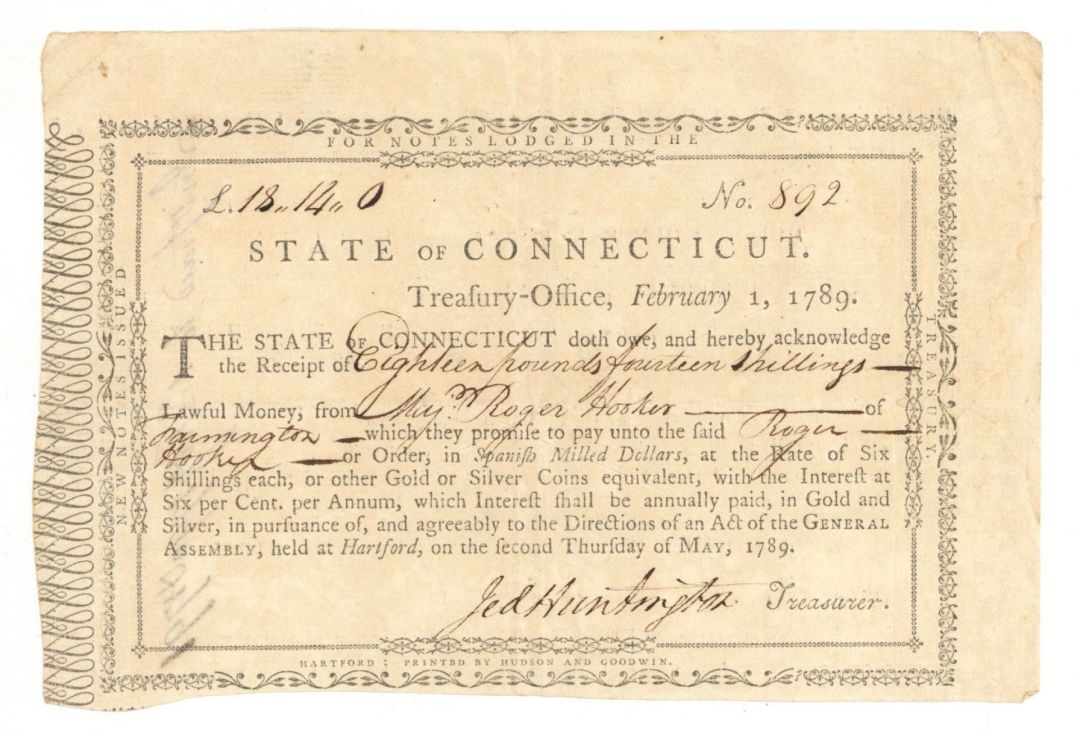 FOR NOTES LODGED IN THE
£.18,,14,,0 No. 892
STATE OF CONNECTICUT.
Treaſury-Office, February 1, 1789.
THE STATE OF CONNECTICUT doth owe, and hereby acknowledge
the Receipt of Eighteen pounds fourteen Shillings
Lawful Money, from Majr. Roger Hooker of
Farmington which they promiſe to pay unto the ſaid Roger
Hooker or Order, in Spaniſh Milled Dollars, at the Rate of Six
Shillings each, or other Gold or Silver Coins equivalent, with the Intereſt at
Six per Cent. per Annum, which Intereſt ſhall be annually paid, in Gold and
Silver, in purſuance of, and agreeably to the Directions of an Act of the GENERAL
ASSEMBLY, held at Hartford, on the ſecond Thurſday of MAY, 1789.
Jed Huntington Treasurer.
HARTFORD: PRINTED BY HUDSON AND GOODWIN.
NEW NOTES ISSUED
TREASURY.